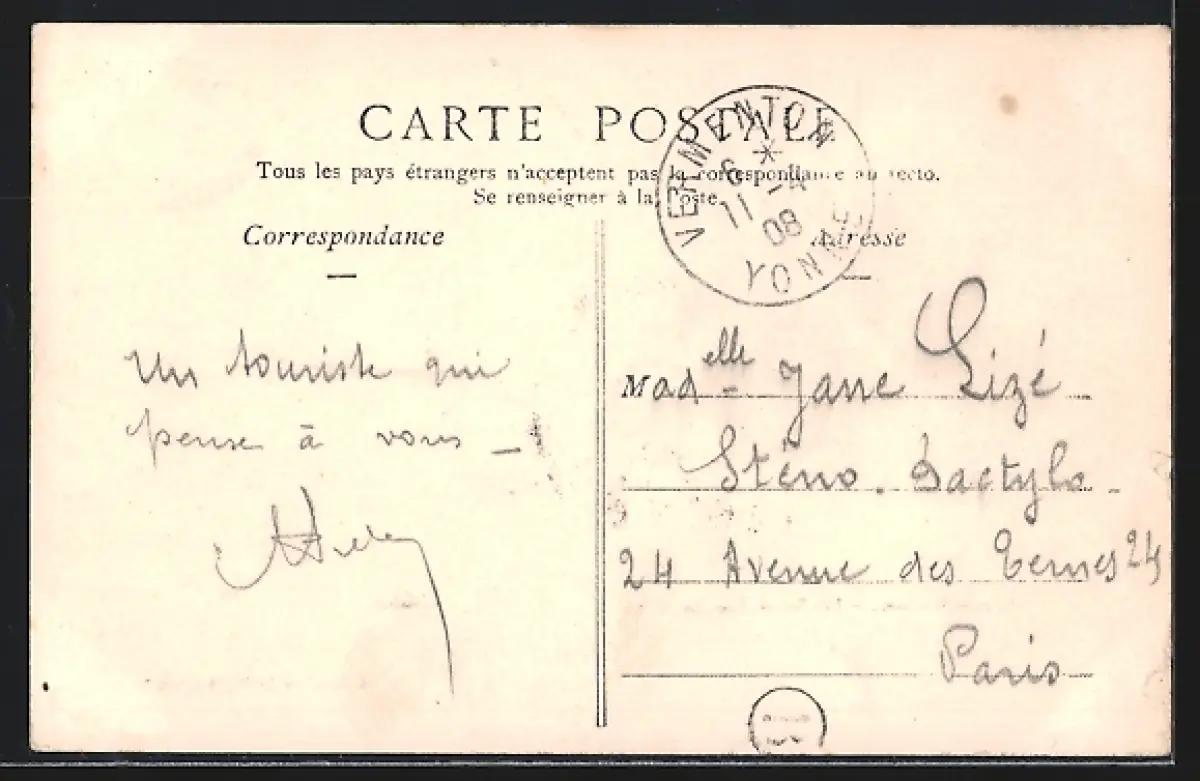 CARTE POSTALE
Tous les pays étrangers n'acceptent pas la correspondance au recto.
Se renseigner à la Poste.
VERMENTON
6 *
11 -4
08
YONNE
Correspondance
Adresse
Un touriste qui
pense à vous -
Madelle Jane Lizé
Sténo. Dactylo
24 Avenue des Ternes 24
Paris